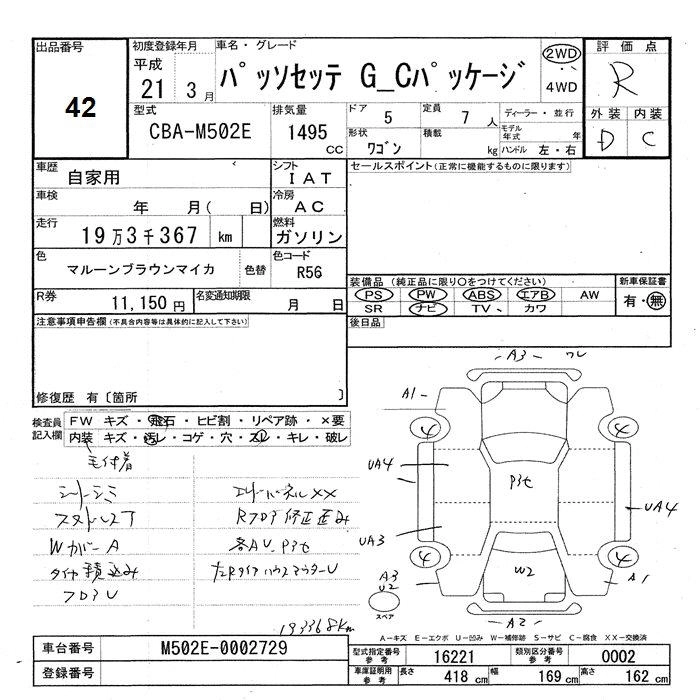 出品番号
42
初度登録年月
平成
21 3月
車名・グレード
パッソセッテ G_Cパッケージ
2WD
・
4WD
評価点
R
型式
CBA-M502E
排気量
1495 cc
ドア 5
定員 7 人
形状 ワゴン
積載 kg
ディーラー・並行
モデル年式 年
ハンドル 左・右
外装 内装
D C
車歴
自家用
シフト
IAT
車検
年 月( 日)
冷房
AC
走行
19万3千367 km
燃料
ガソリン
色
マルーンブラウンマイカ 色替
色コード
R56
R券
11,150円
名変通知期限
月 日
セールスポイント(正常に機能するものに限ります)
装備品(純正品に限り○をつけてください)
PS PW ABS エアB AW
SR ナビ TV、 カワ
新車保証書
有・無
後日品
注意事項申告欄(不具合内容等は具体的に記入して下さい)
修復歴 有〔箇所 〕
検査員記入欄
FW キズ・飛石・ヒビ割・リペア跡・×要
内装 キズ・汚レ・コゲ・穴・スレ・キレ・破レ
毛付着
シートシミ
Wカバー A
タイヤ積込み
フロア U
コーナーパネル XX
Rフロア修正歪み
各AU、P3も
193368km
-A3- ワレ
A1-
4
4
UA4
P3も
UA4
UA3
4
4
W2
A3
U2
A1
-A2-
スペア
A-キズ E-エクボ U-凹み W-補修跡 S-サビ C-腐食 XX-交換済
車台番号
M502E-0002729
登録番号
型式指定番号 参考
16221
類別区分番号 参考
0002
車庫証明用 参考
長さ 418 cm 幅 169 cm 高さ 162 cm